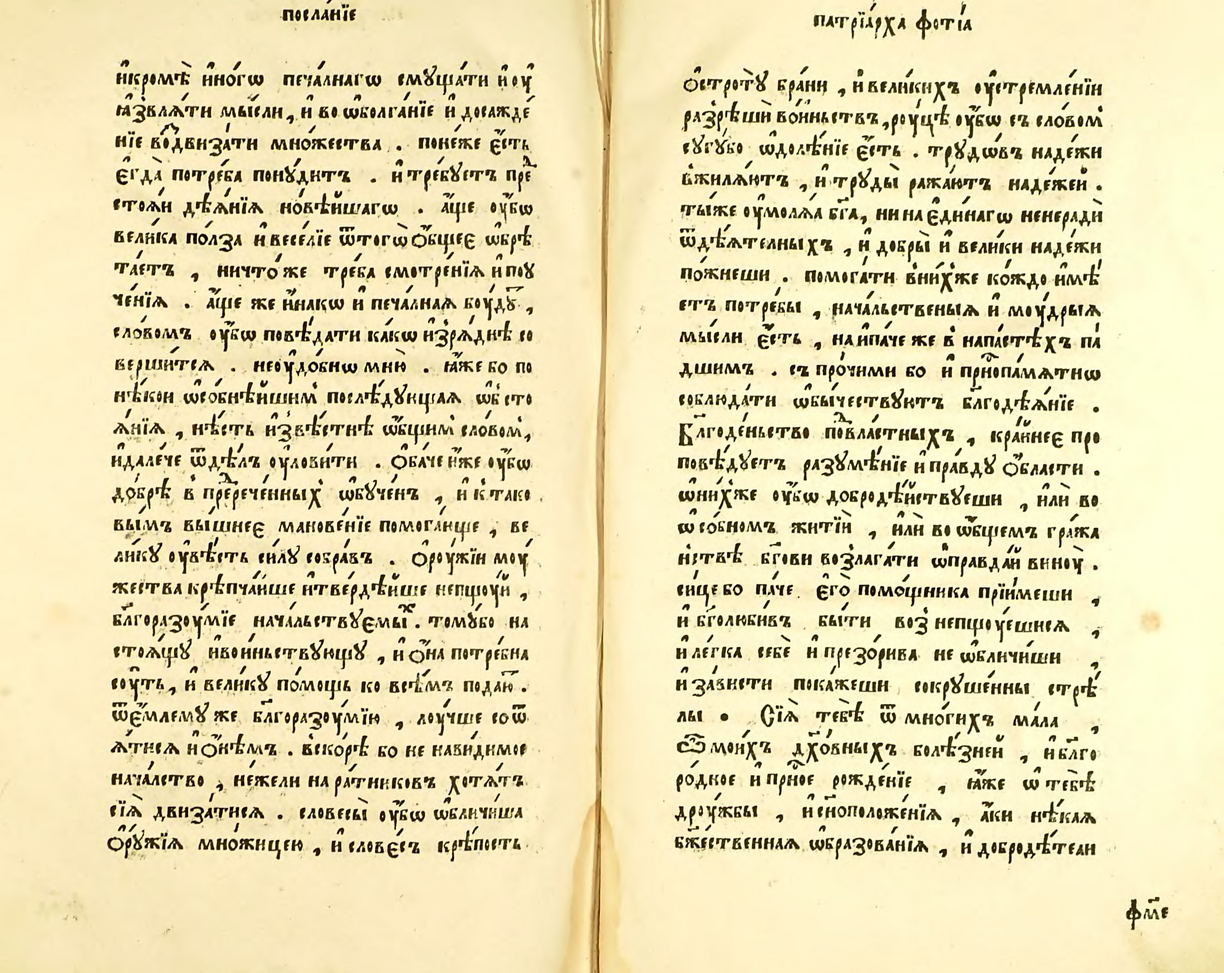 посла́нїе
и҆кромѣ̀ и҆но́гѡ печа́лнагѡ смꙋща́ти и҆ оу
ꙗ҆звлѧ́ти мы́сли, и҆ во ѡ҆болга́нїе и҆ досажде́
нїе вᲂдвиза́ти мно́жества . поне́же є҆́сть
є҆гда̀ потре́ба понꙋ́дитъ . и҆ тре́бꙋетъ пре
стоѧ́й дѣѧ́нїѧ новѣ́йшагѡ . а҆́ще оу҆́бѡ
вели́ка по́лза и҆ весе́лїе ѿтогѡ̀ ѻ҆́бщеє ѡ҆брѣ
та́етъ , ничто́же тре́ба смотре́нїѧ и҆ поу
че́нїѧ . а҆́ще же и҆на́кѡ и҆ печа́лнаѧ боу́дꙋ ,
сло́вомъ оу҆́бѡ повѣ́дати ка́кѡ и҆зрѧ́днѣ со
верши́тсѧ . неоудо́бнѡ мню̀ . ꙗ҆́же бо по
нѣ́кои ѡ҆со́бнѣйшим послѣ́дꙋющаѧ ѡ҆бсто
ѧ́нїѧ , нѣ́сть и҆звѣ́стнѣ ѡ҆́бщим сло́вом,
и҆дале́че ѿдѣ́лъ оу҆лови́ти . ѻ҆ба́че и҆́же оу҆́бѡ
до́брѣ в преⷣрече́нныхъ ѡ҆бꙋче́нъ , и҆ к тако
вы́мъ вы́шнеє манове́нїе помога́юще , ве
ли́кꙋ оу҆вѣ́сть си́лꙋ собра́въ . ѻ҆роу́жїи моу́
жества крѣпча́йше и҆ тверде́йше непщоу́й ,
бл҃горазоу́мїе нача́льствꙋемыⷯ . томꙋ́бо на
стоѧ́щꙋ и҆ вои́ньствꙋющꙋ , и҆ ѻ҆на̀ потре́бна
соу́ть, и҆ вели́кꙋ по́мощь ко всѣ́мъ подаю̀ .
ѿе́млемꙋ же бл҃горазоу́мїю , лоу́чше соѿ
ѧ́тисѧ и҆ ѻ҆́нѣмъ . вско́рѣ бо не нави́димое
нача́лство , не́жели на ра́тниковъ хотѧ́тъ
сїѧ̀ двиза́тисѧ . словесы̀ оу҆́бѡ ѡ҆бличи́ша
ѻ҆рꙋ́жїѧ мно́жицею , и҆ слове́съ крѣ́пость
патрїа́рха фо́тїа
ѻ҆стротꙋ̀ бра́ни , и҆ вели́кихъ оу҆стремле́нїи
разрѣшѝ во́иньствъ, роуцѣ̀ оу҆́бѡ съ сло́вом
сꙋгꙋ́бо ѡ҆долѣ́нїе є҆́сть . трꙋдѡ́въ наде́жи
вжилѧ́ютъ , и҆ трꙋды̀ ражаю́тъ наде́жей .
ты́же оу҆молѧ́ѧ бг҃а, ни на є҆ди́нагѡ ненерадѝ
ѿдѣ́ѧтелныхъ , и҆ до́бры и҆ вели́ки наде́жи
по́жнеши . помога́ти внихже ко́ждо и҆мѣ́
етъ потре́бы , нача́льственыѧ и҆ моу́дрыѧ
мы́сли є҆́сть , наи́паче же в напа́стѣхъ па́
дшимъ . съ про́чими бо и҆ приⷭ҇нопа́мѧтнѡ
соблюда́ти ѡ҆бы́чествꙋютъ бл҃годѣѧ́нїе .
Бл҃годе́ньство поⷣвла́стныхъ , кра́йнеє про
повѣ́дꙋетъ разꙋмѣ́нїе и҆ пра́вдꙋ ѻ҆́бласти .
ѡ҆ни́хже оу҆́бѡ добродѣ́йствꙋеши , и҆лѝ во
ѡ҆со́бномъ житїѝ , и҆лѝ во ѡ҆́бщемъ гра́жа
нствѣ бг҃ови возлага́ти ѡ҆правда́й виноу̀ .
си́це бо па́че є҆го̀ помо́щника прїи́меши ,
и҆ бг҃олюби́въ бы́ти возⸯнепщоу́ешисѧ ,
и҆ ле́гка себѐ и҆ презо́рива не ѡ҆бличи́ши ,
и҆ за́висти пока́жеши сокрꙋше́нны стрѣ́
лы . Сїѧ̀ тебѣ̀ ѿ мно́гихъ ма́ла ,
Ѿ мои́хъ дх҃о́вныхъ болѣ́зней , и҆ бл҃го
ро́дное и҆ приⷭ҇ное рожде́нїе , ꙗ҆́же ѡ҆ тебѣ̀
дроу́жбы , и҆ сн҃оположе́нїѧ , а҆́ки нѣ́каѧ
бж҃ественнаѧ ѡ҆бразова́нїѧ , и҆ добродѣ́тели
фм҃е